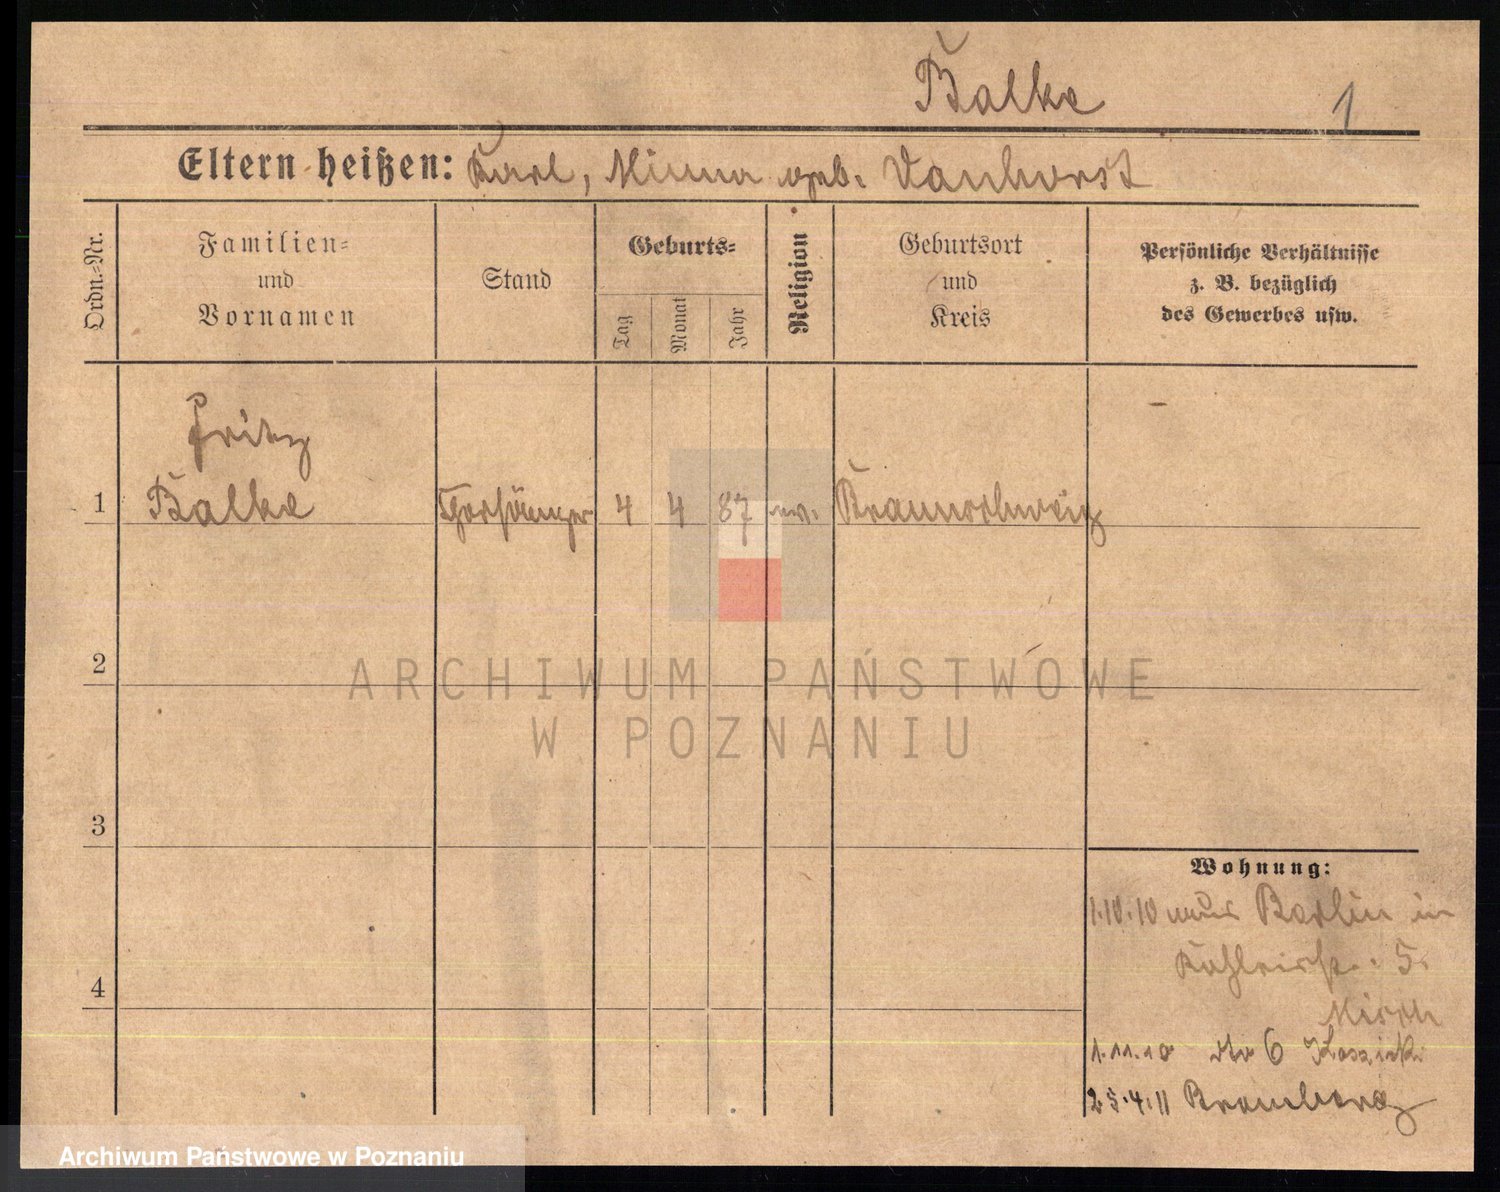 Balke
1
Eltern heißen: Karl, Minna geb. Vanhorst
Ordn.=Nr.
Familien=
und
Vornamen
Stand
Geburts=
Tag
Monat
Jahr
Religion
Geburtsort
und
Kreis
Persönliche Verhältnisse
z. B. bezüglich
des Gewerbes usw.
Fritz
1 Balke Chorsänger 4 4 87 ev. Braunschweig
–
2
ARCHIWUM PAŃSTWOWE
W POZNANIU
3
Wohnung:
1.10.10 aus Berlin in
5.
4
1.11.10 dto 6
25.4.11 Bromberg
Archiwum Państwowe w Poznaniu